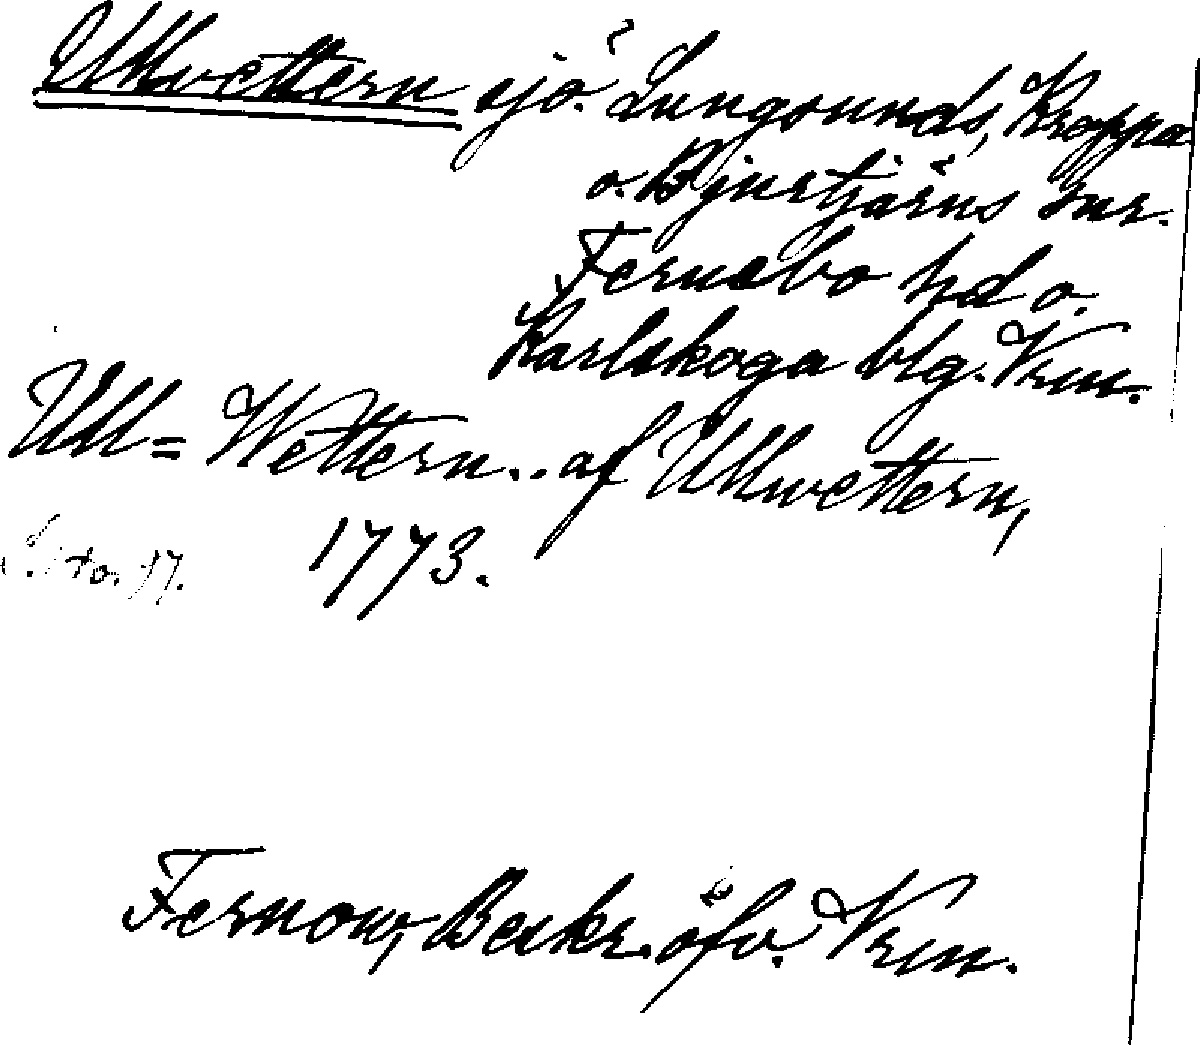 Ullvettern sjö. Lungsunds, Kroppa
o. Bjurtjärns snr.
Fernebo hd o.
Karlskoga blg. Vrm.
Ull= Wettern.. af Ullwettern,
1773.
Fernow, Beskr. öfv. Vrm.